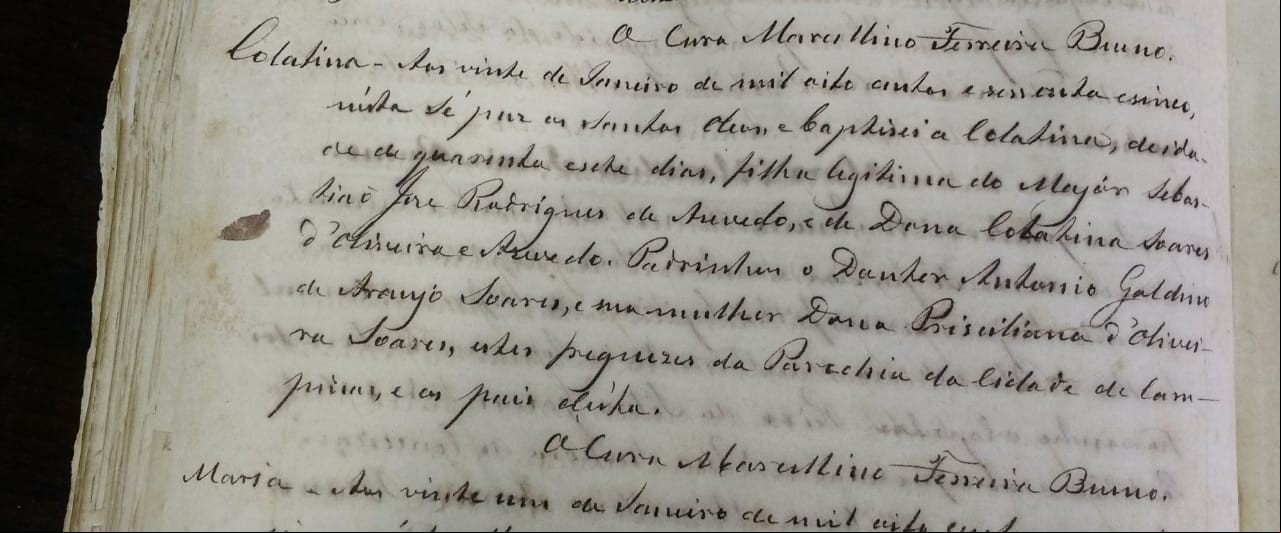 O Cura Marcellino Ferreira Bueno.
Colatina - Aos vinte de Janeiro de mil oito centos e sessenta ecinco,
nésta Sé puz os Santos Oleos, e baptisei a Colatina, de ida-
de de quarenta esete dias, filha legitima do Majór Sebas-
tiaõ Jose Rodrigues de Azevedo, e de Dona Colatina Soares
d'Oliveira e Azevedo. Padrinhos o Doutor Antonio Galdino
de Araujo Soares, e sua mulher Dona Prisciliana d'Olivei-
ra Soares, estes freguezes da Parochia da Cidade de Cam-
pinas, e os pais désta.
O Cura Marcellino Ferreira Bueno.
Maria - Aos vinte um de Janeiro de mil oito cent